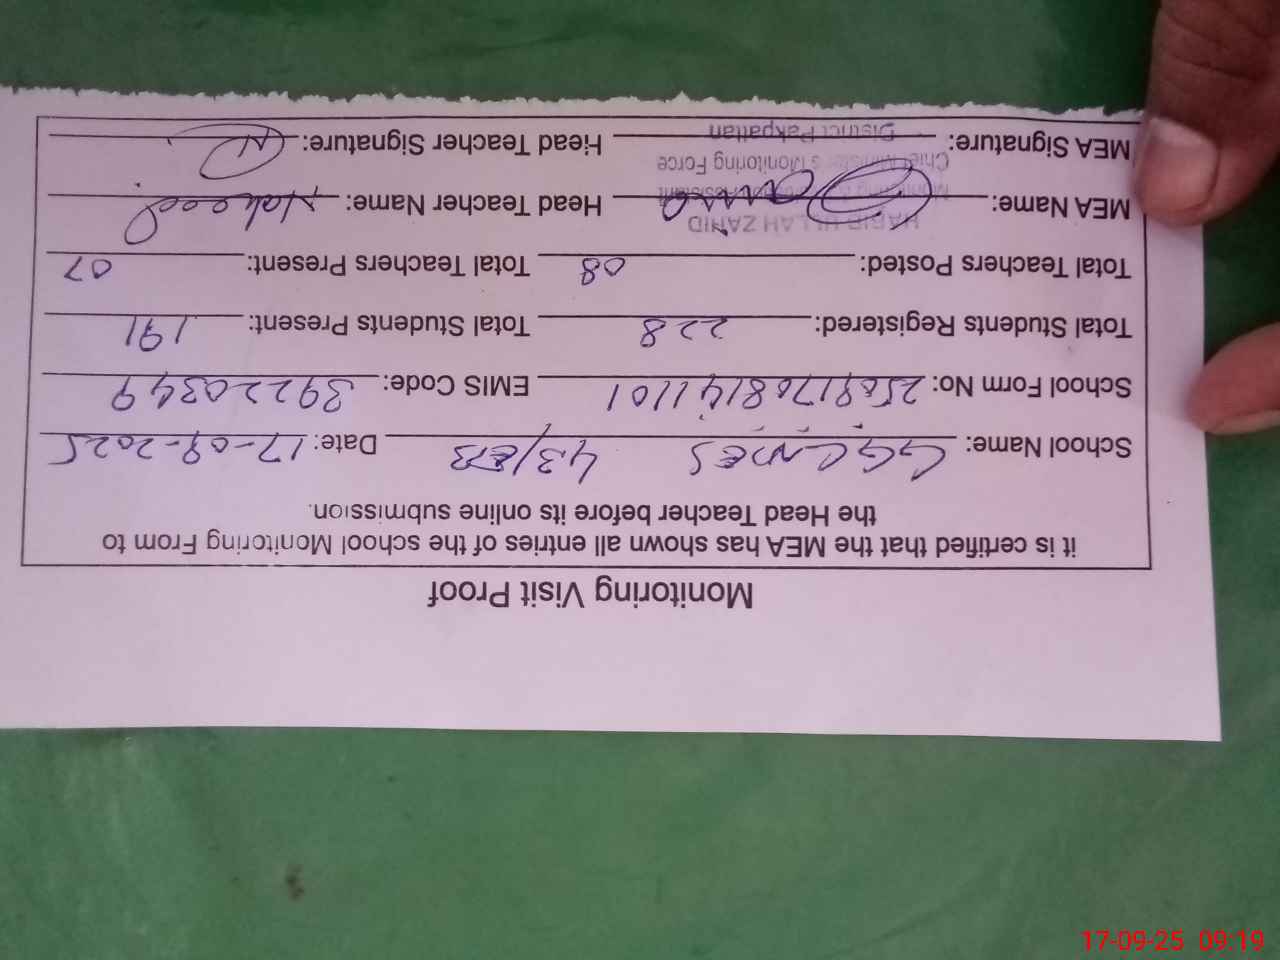 Monitoring Visit Proof
it is certified that the MEA has shown all entries of the school Monitoring From to
the Head Teacher before its online submission.
School Name: 43/EB Date: 17-09-2025
School Form No: EMIS Code: 39220349
Total Students Registered: 228 Total Students Present: 191
Total Teachers Posted: 08 Total Teachers Present: 07
MEA Name: Head Teacher Name:
HABIB ULLAH ZAHID
Chief Minister's Monitoring Force
MEA Signature: Head Teacher Signature:
District Pakpattan
17-09-25 09:19